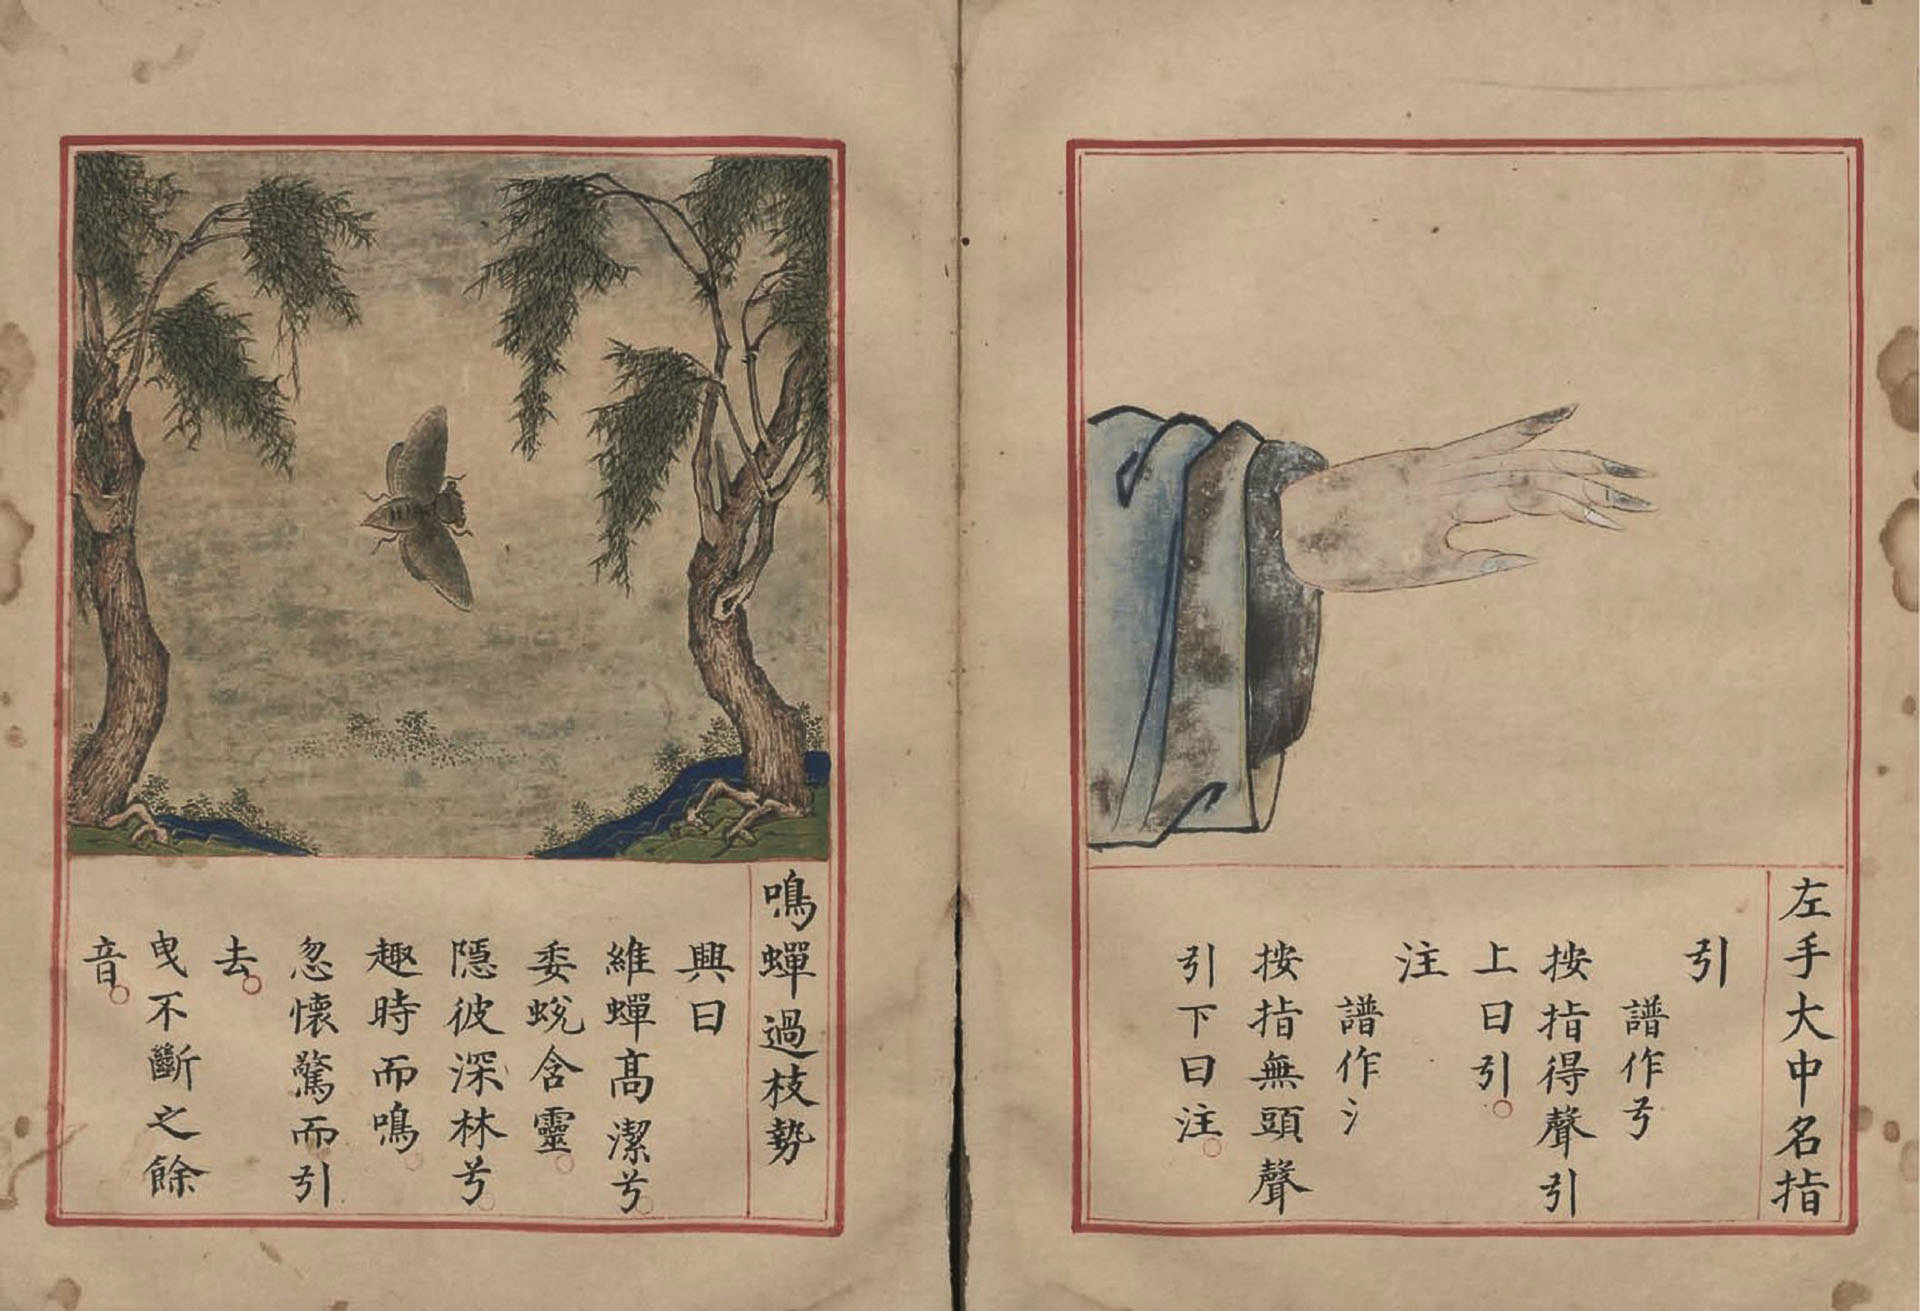 左手大中名指
引
譜作弓
按指得聲引
上曰引
注
譜作氵
按指無頭聲
引下曰注
鳴蟬過枝勢
興曰
維蟬高潔兮
委蛻含靈
隱彼深林兮
趣時而鳴
忽懷驚而引
去
曳不斷之餘
音